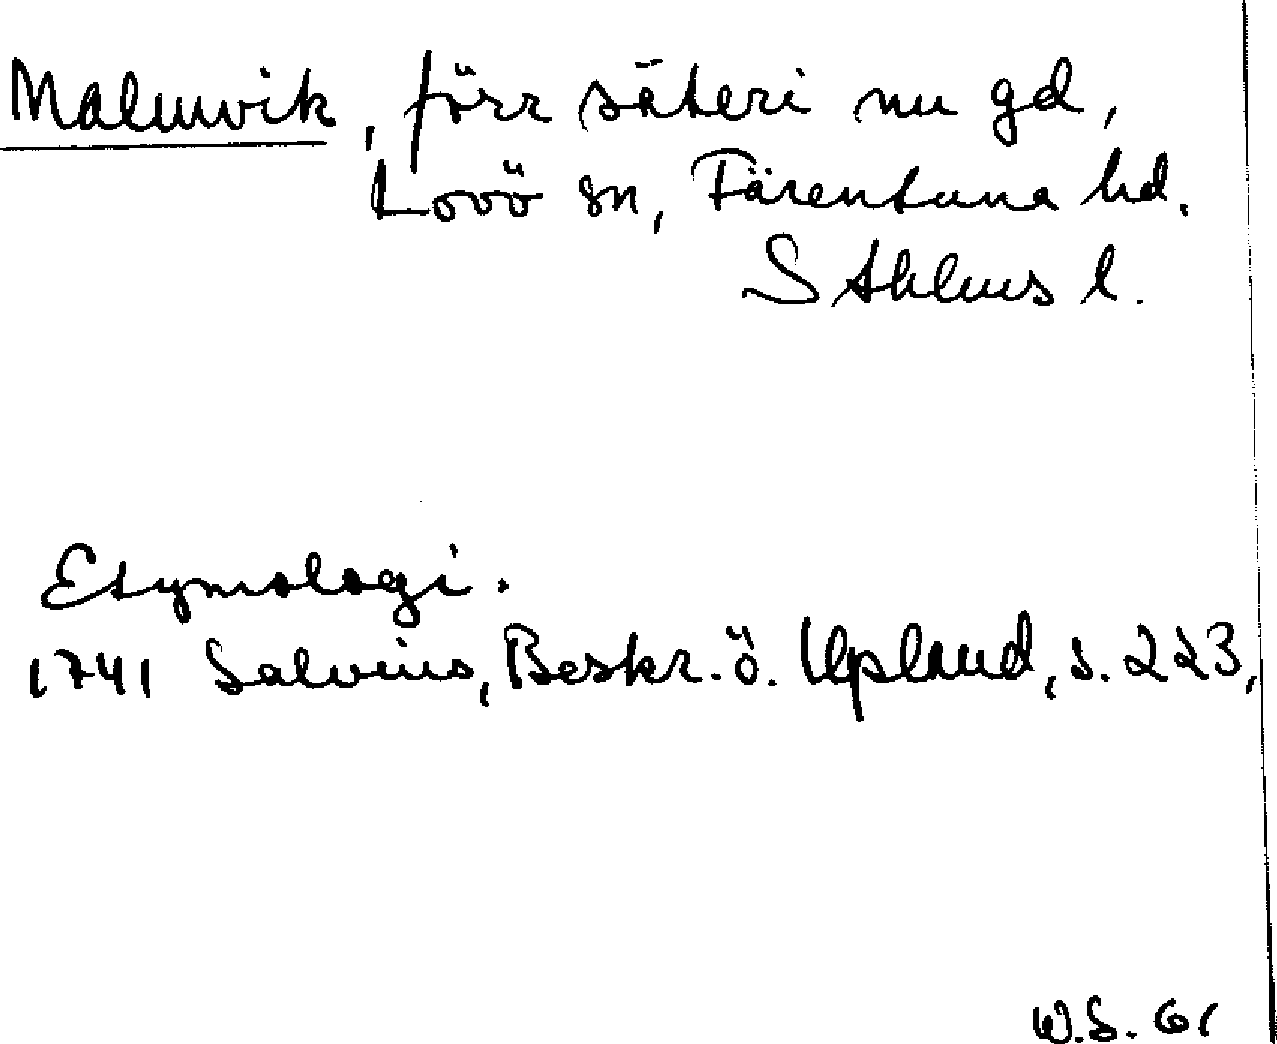 Malmvik, förr säteri nu gd,
Lovö sn, Färentuna hd.
Sthlms l.
Etymologi.
1741 Salvius, Beskr. ö. Upland, s. 223,
W.S. 61